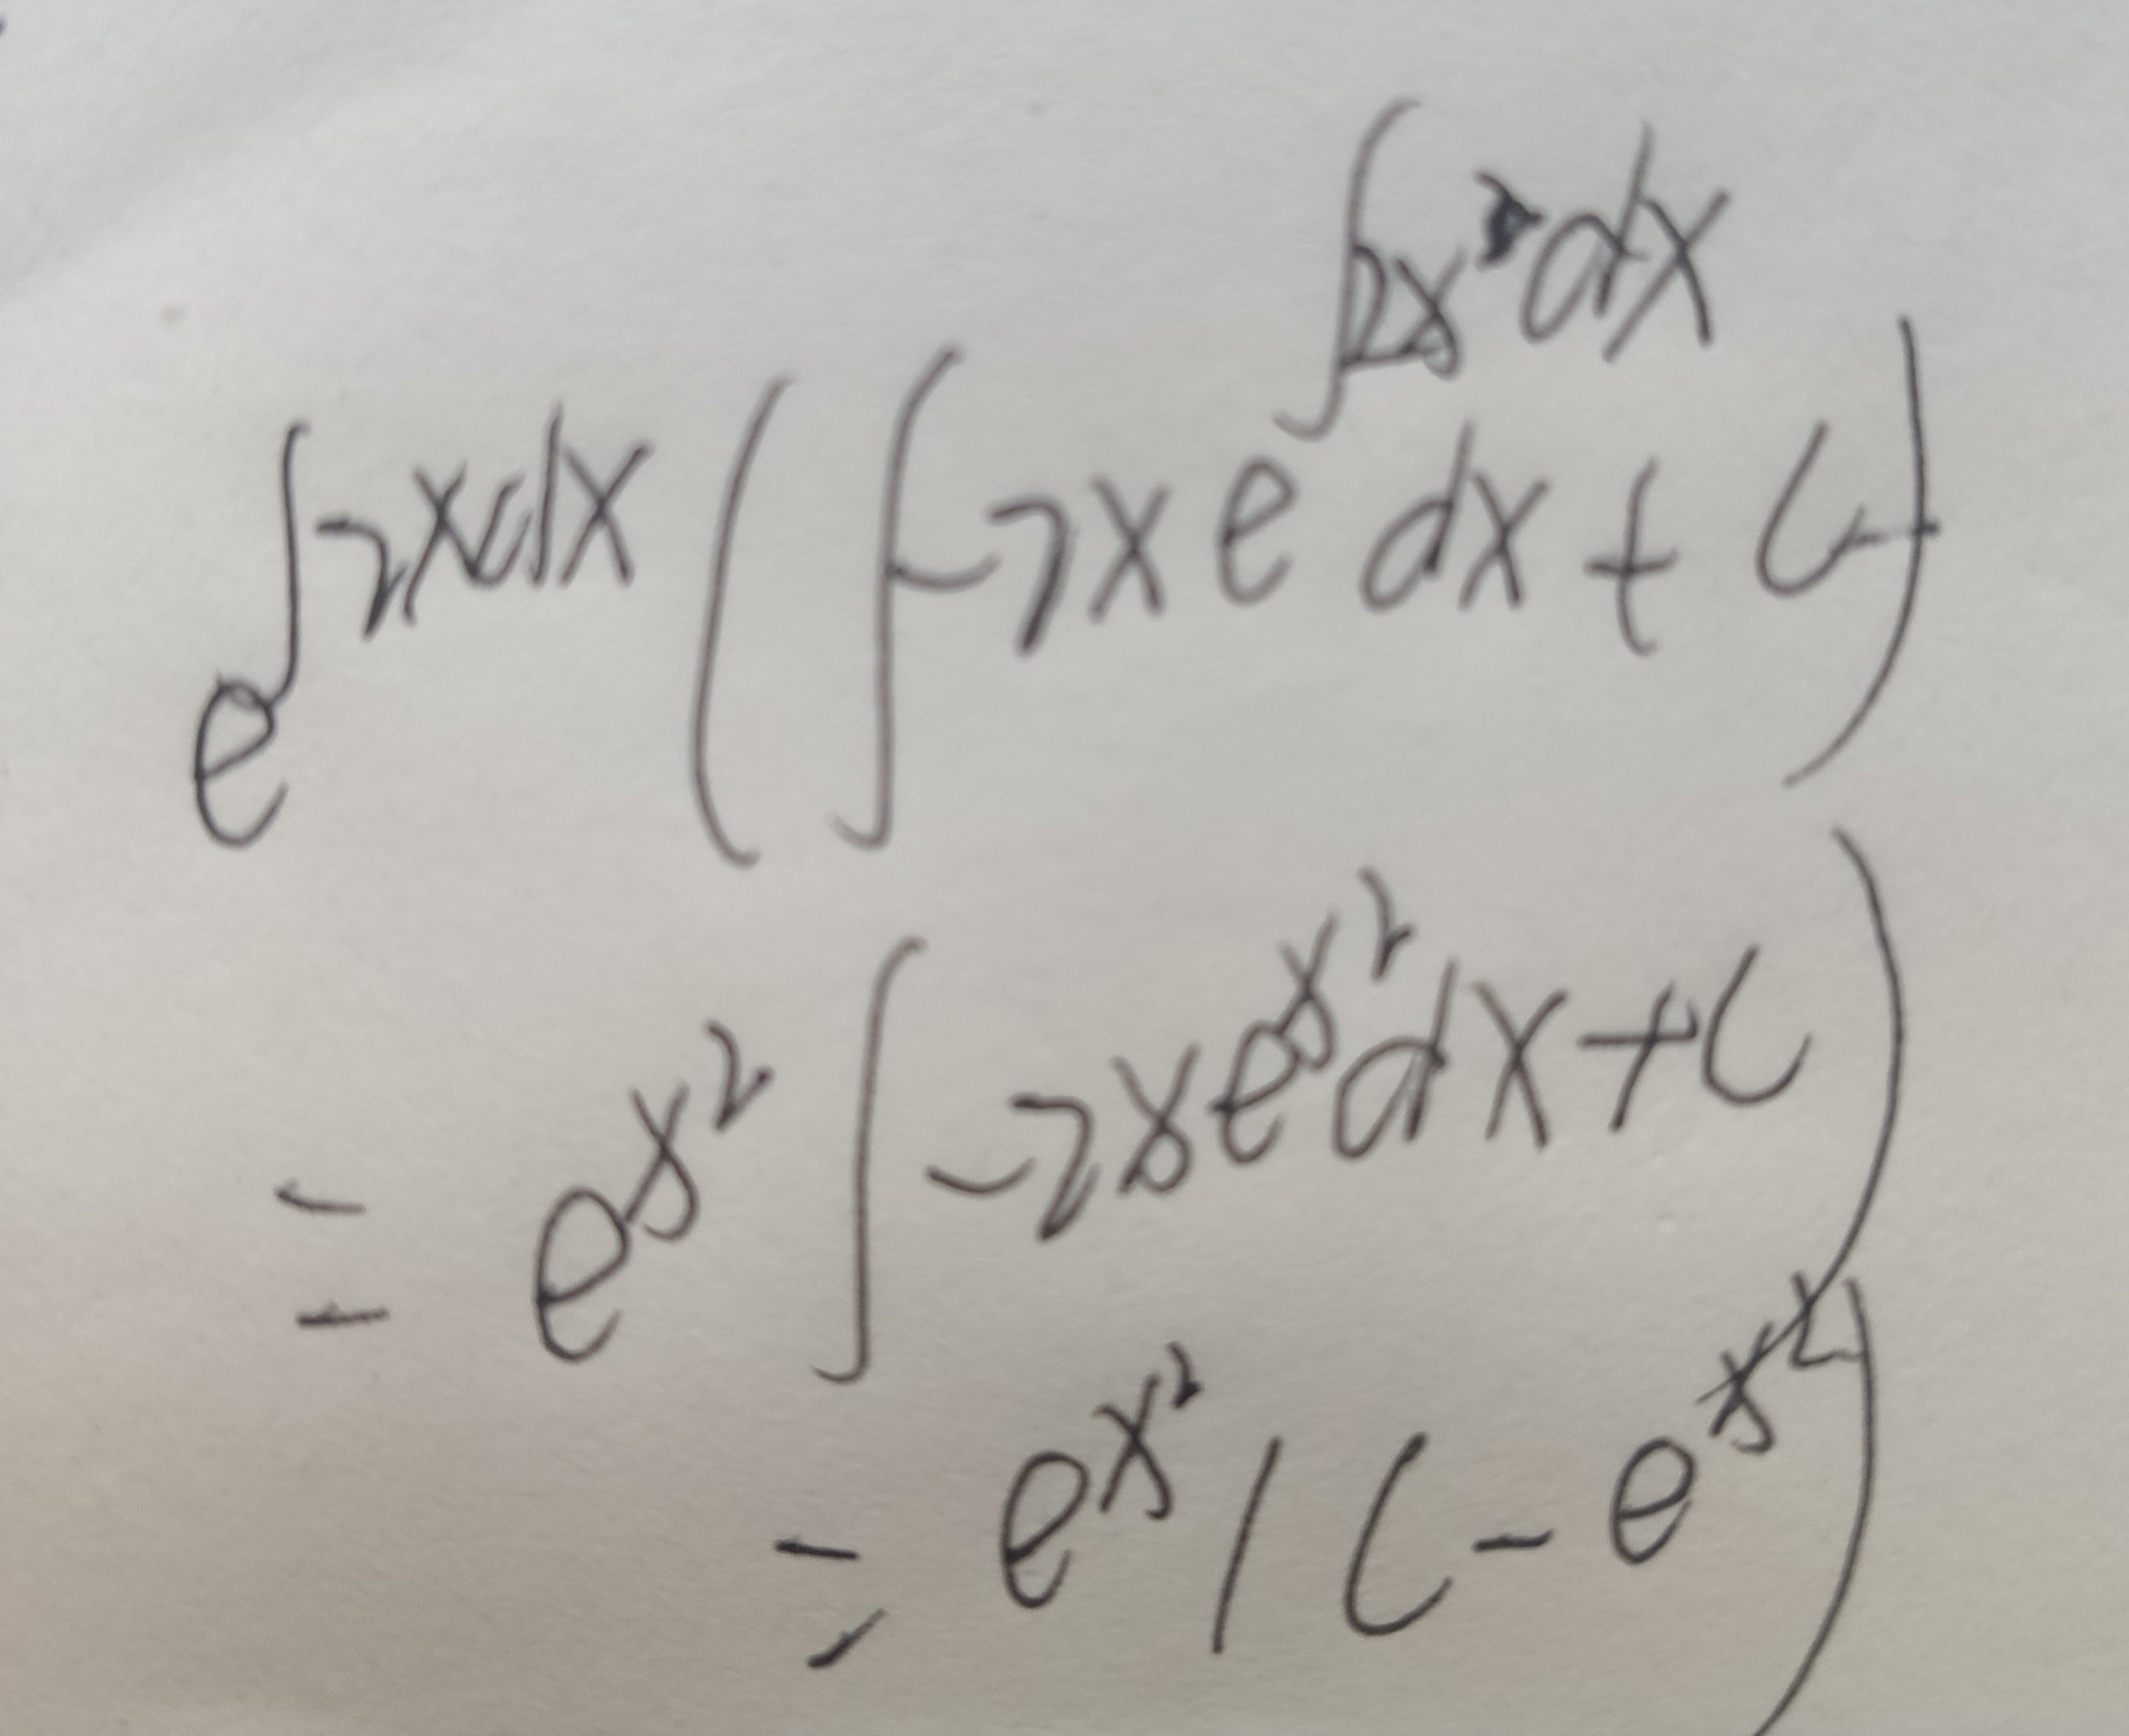 e^{∫2xdx} ( ∫-2x e^{∫2x dx} dx + C )
= e^{x^2} ∫-2xe^{x^2}dx + C )
= e^{x^2} ( C - e^{x^2} )